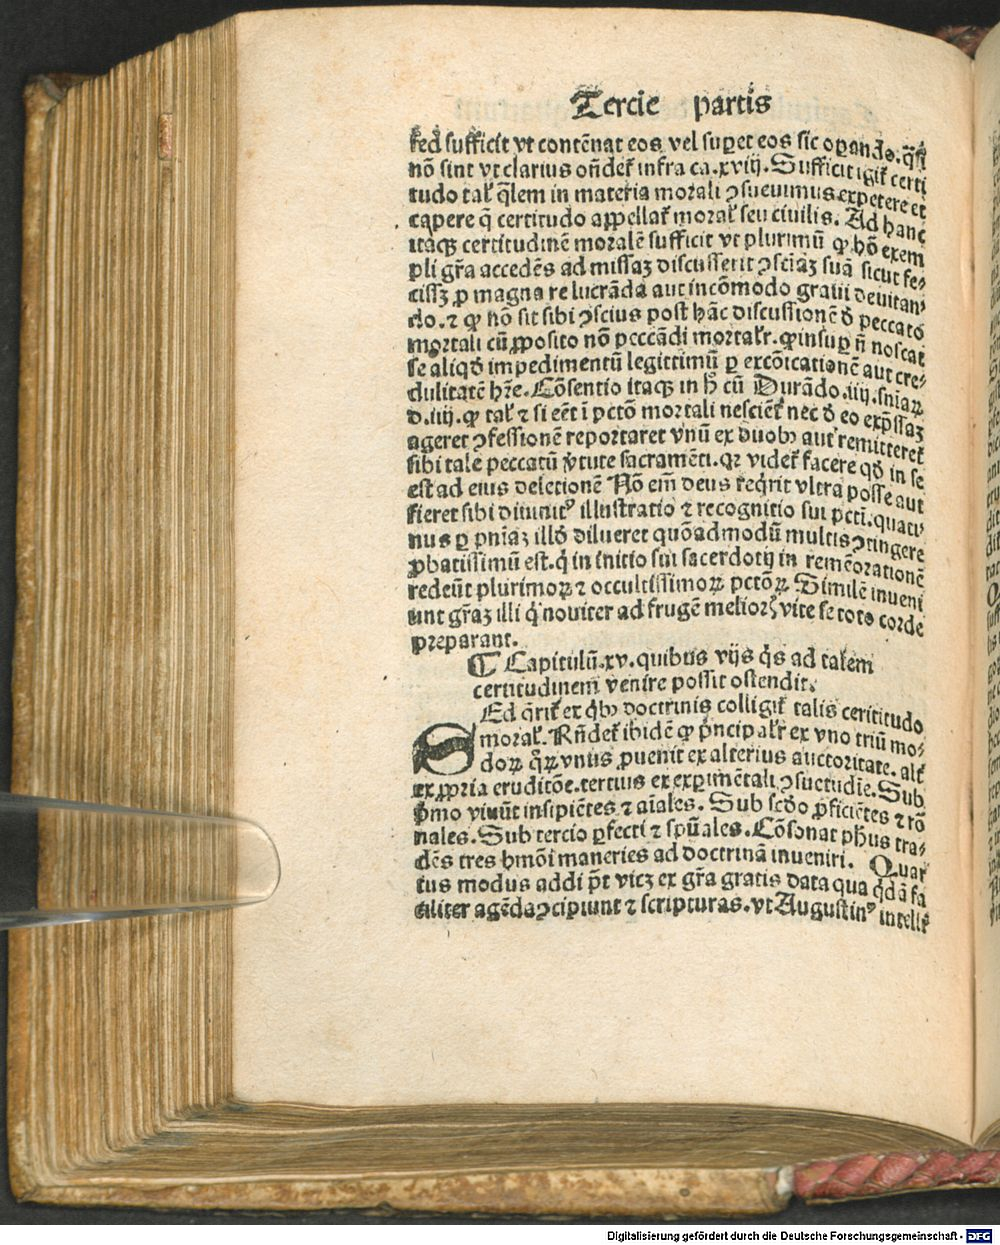 Tercie partis
sed sufficit vt contēnat eos vel suꝑet eos sic oꝑando. q̄si
nō sint vt clarius oñdeť infra ca. xviij. Sufficit igiť certi
tudo taľ q̄lem in materia morali ꝯsueuimus expetere et
capere q̄ certitudo aꝓpellať moraľ seu ciuilis. Ad hanc
itaqꝫ certitudinē moralē sufficit vt plurimū ꝙ hō exem
pli gřa accedēs ad missaꝫ discusserit ꝯsciāꝫ suā sicut fe⸗
cissꝫ ꝓ magna re lucrāda aut incōmodo graui deuitan⸗
do. ⁊ ꝙ nō sit sibi ꝯscius post hāc discussionē đ peccato
mortali cū ꝓposito nō peccādi mortalr̃. ꝙ insuꝑ ñ noscat
se aliqđ impedimentū legittimū ꝑ excōicationē aut cre⸗
dulitatē hře. Cōsentio itaqꝫ in ħ cū Durādo. iiij. sniaꝝ
d. iiij. ꝙ taľ ⁊ si eēt ī pctō mortali nescieť nec đ eo exp̄ssaꝫ
ageret ꝯfessionē reportaret vnū ex duobꝰ aut remittereť
sibi tale peccatū v̄tute sacramēti. qꝛ videť facere qđ in se
est ad eius deletionē Nō em̄ deus req̇rit vltra posse aut
fieret sibi diuinitꝰ illustratio ⁊ recognitio sui pcti. quati⸗
nus ꝑ pniaꝫ illđ dilueret quōadmodū multis ꝯtingere
ꝓbatissimū est. q̇ in initio sui sacerdotij in remēorationē
redeūt plurimoꝝ ⁊ occultissimoꝝ pctōꝝ Similē inueni
unt gřaꝫ illi q̇ nouiter ad frugē melioris vite se toto corde
preparant.
¶ Capitulū. xv. quibus vijs q̇s ad talem
certitudinem venire possit ostendit.
SEd q̄riť ex q̇bꝰ doctrinis colligiť talis ceritudo
moraľ. Rñdeť ibidē ꝙ p̄ncipalr̃ ex vno triū mo⸗
doꝝ q̄ꝝ vnus ꝓuenit ex alterius auctoritate. alť
ex ꝓpria eruditōe. tertius ex exꝑimētali ꝯsuetudīe. Sub
p̄mo viuūt insipiētes ⁊ aīales. Sub scđo ꝓficiētes ⁊ rō
nales. Sub tercio ꝑfecti ⁊ spūales. Cōsonat pħus tra⸗
dēs tres hmōi maneries ad doctrinā inueniri. Quar
tus modus addi p̄t vicꝫ ex gřa gratis data qua q̇dā fa
ciliter agēda ꝯcipiunt ⁊ scripturas. vt Augustinꝰ in tellr̃
Digitalisierung gefördert durch die Deutsche Forschungsgemeinschaft - DFG